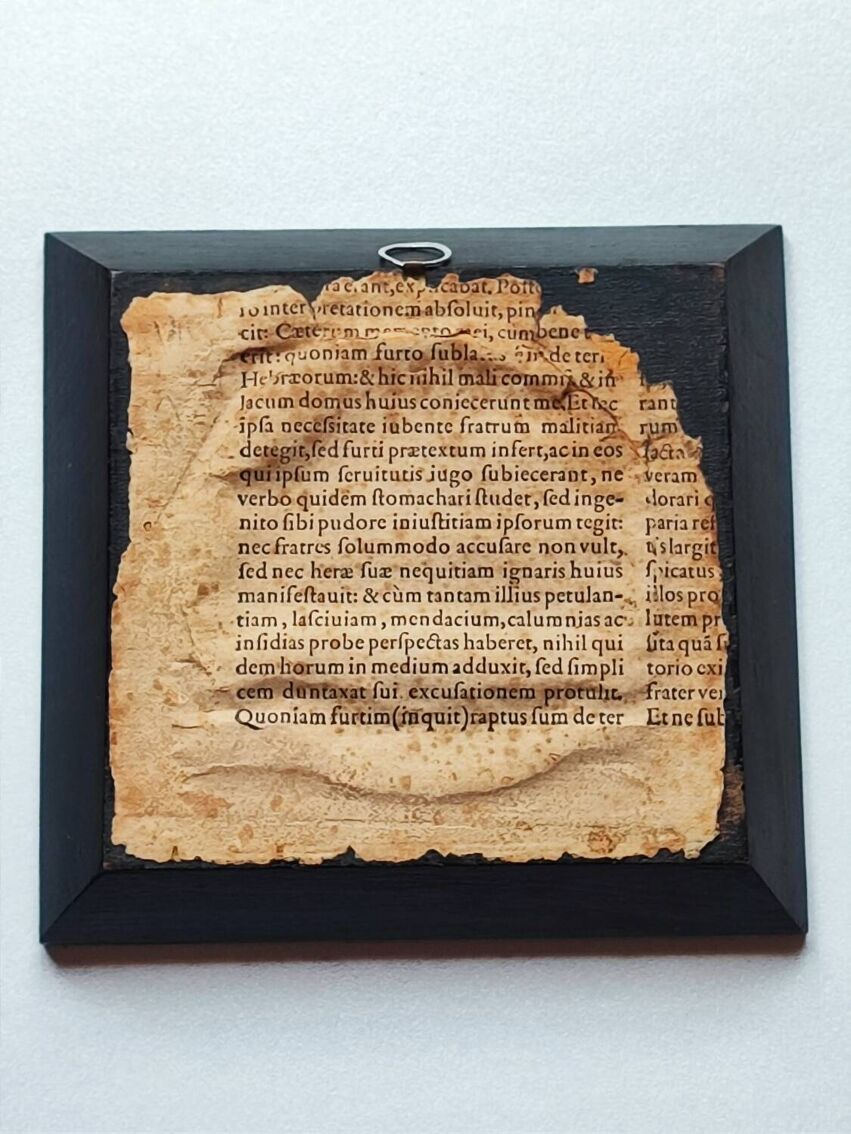 cabat. Post
interpretationem absoluit,
cit: Cæterum memento mei, cum bene
erit: quoniam furto de terr
Hebræorum: & hic nihil mali commisi, & in
lacum domus huius coniecerunt me. Et nec
ipſa neceſsitate iubente fratrum malitiam
detegit, ſed furti prætextum inſert, ac in eos
qui ipſum ſeruitutis iugo ſubiecerant, ne
verbo quidem ſtomachari ſtudet, ſed inge-
nito ſibi pudore iniuſtitiam ipſorum tegit:
nec fratres ſolummodo accuſare non vult,
ſed nec heræ ſuæ nequitiam ignaris huius
manifeſtauit: & cùm tantam illius petulan-
tiam, laſciuiam, mendacium, calumnias ac
inſidias probe perſpectas haberet, nihil qui
dem horum in medium adduxit, ſed ſimpli
cem duntaxat ſui excuſationem protulit.
Quoniam furtim (inquit) raptus ſum de ter
rant
rum
facta
veram
dorari
paria reſ
tis largit
ſpicatus
illos pro
lutem pr
ſita quã ſ
torio exi
frater ver
Et ne ſub